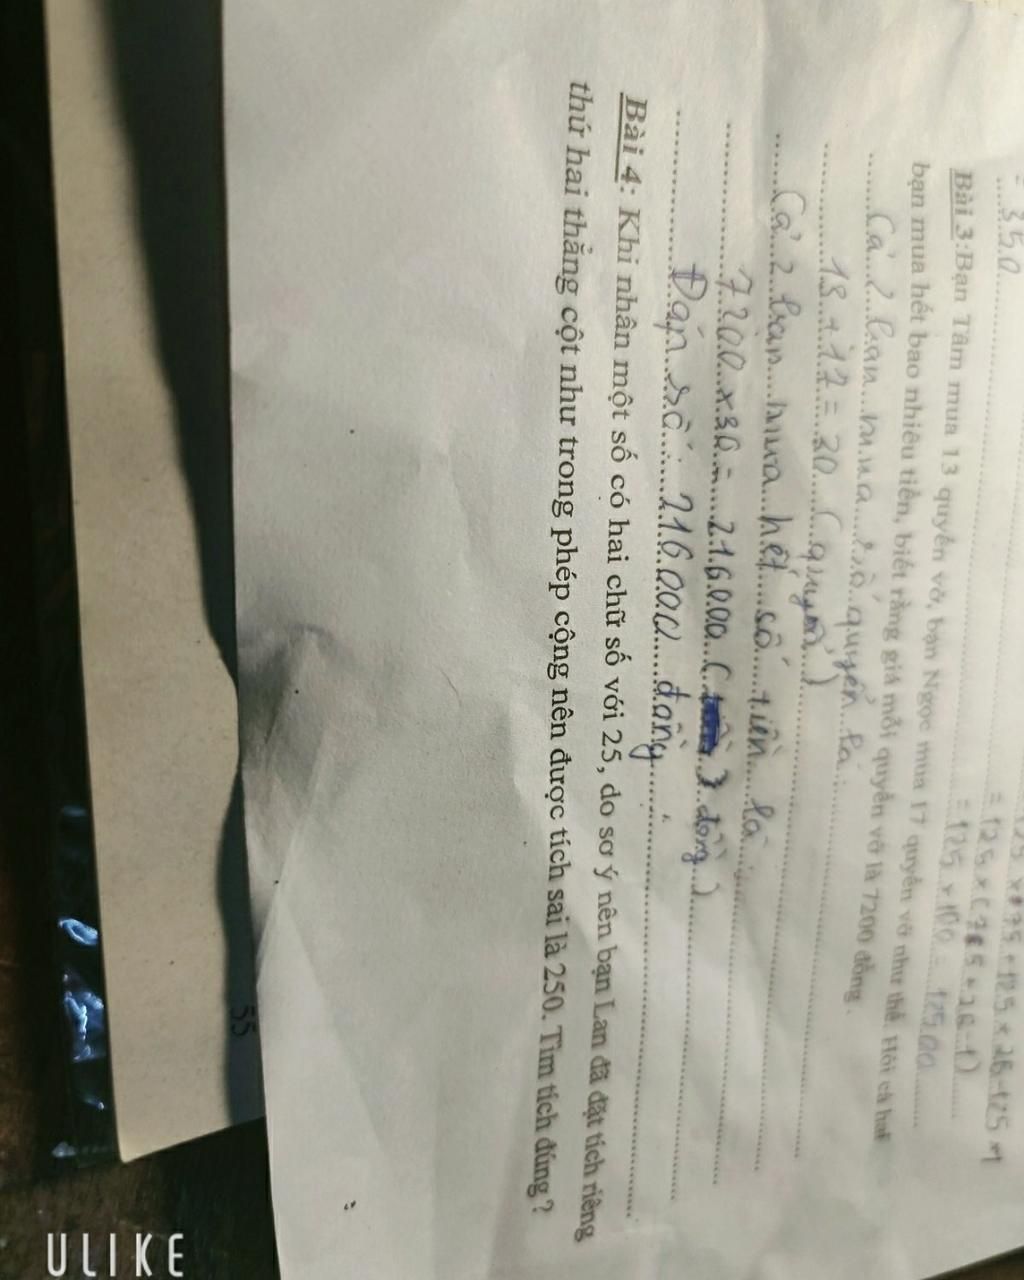 = 350
125 × 75 + 125 × 26 - 125 × 1
= 125 × ( 75 + 26 - 1 )
= 125 × 100 = 12500
Bài 3: Bạn Tâm mua 13 quyển vở, bạn Ngọc mua 17 quyển vở như thế. Hỏi cả hai
bạn mua hết bao nhiêu tiền, biết rằng giá mỗi quyển vở là 7200 đồng.
Cả 2 bạn mua số quyển là :
13 + 17 = 30 ( quyển )
Cả 2 bạn mua hết số tiền là :
7200 × 30 = 216000 ( đồng )
Đáp số : 216000 đồng
Bài 4: Khi nhân một số có hai chữ số với 25, do sơ ý nên bạn Lan đã đặt tích riêng
thứ hai thẳng cột như trong phép cộng nên được tích sai là 250. Tìm tích đúng?
55
ULIKE